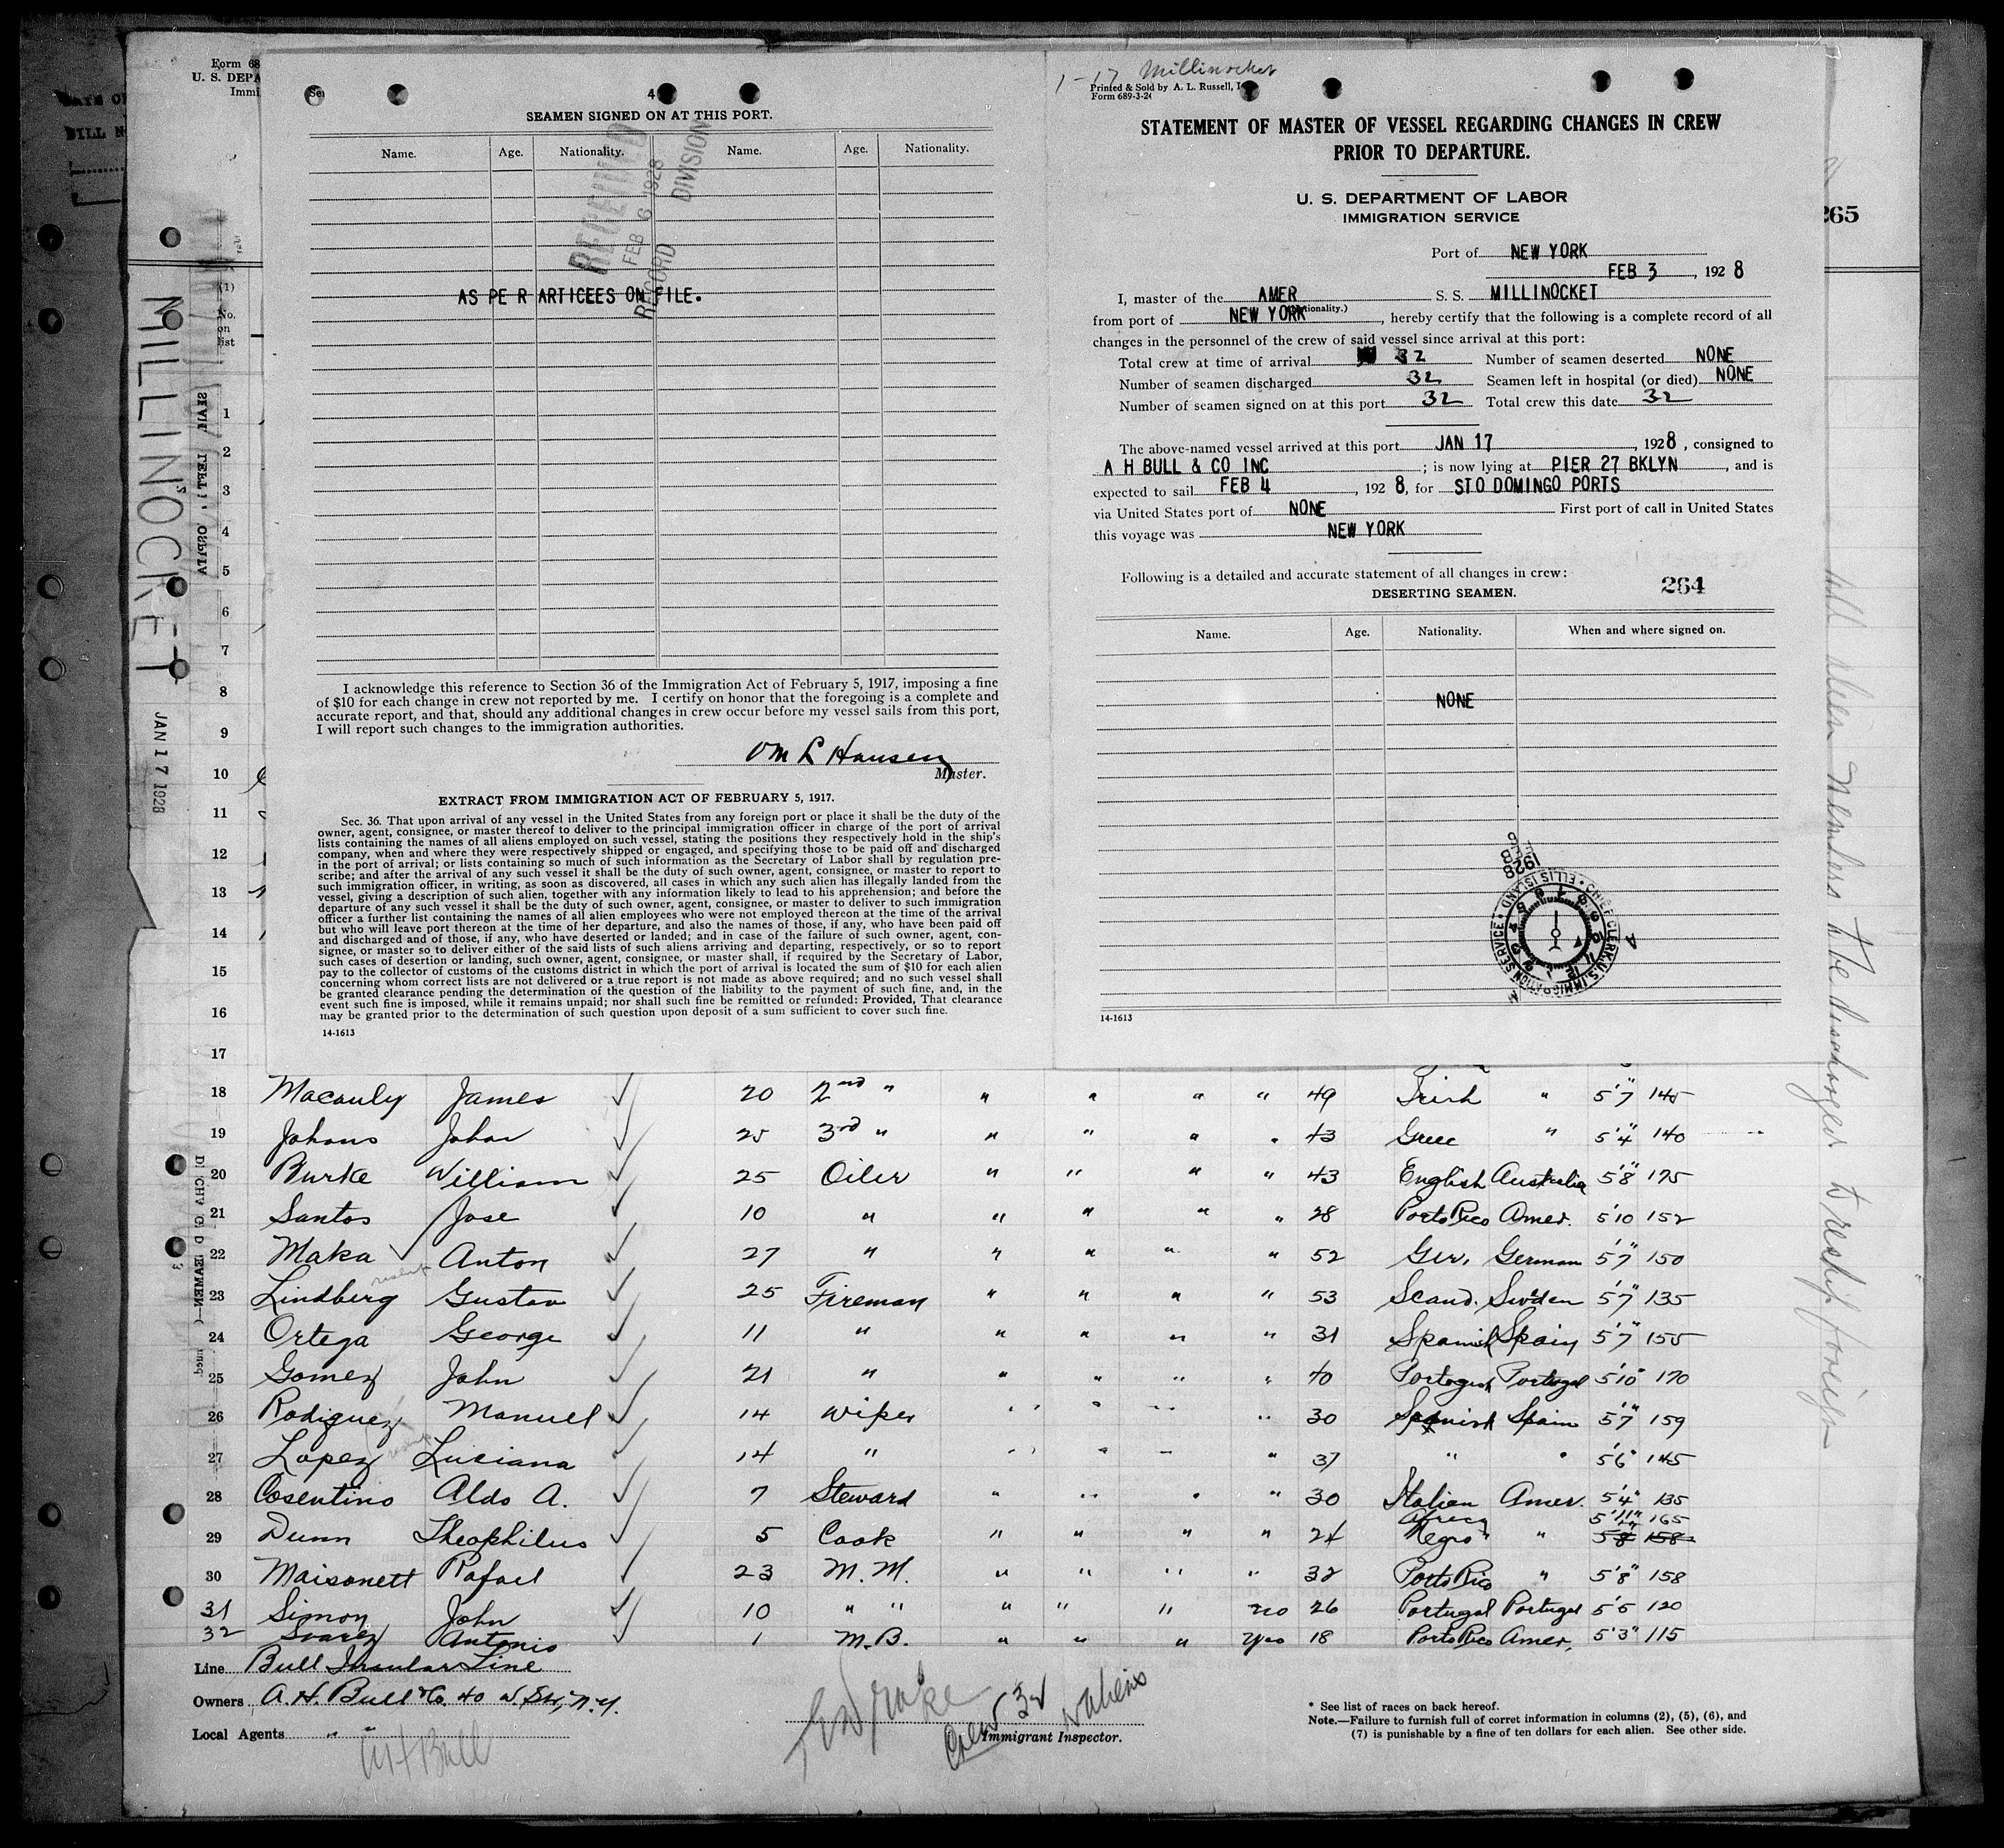 Form 68
U. S. DEPA
Immi
DAYS OF
BILL N
MILLINOCKET
JAN 17 1928
(1)
No.
on
list
1
2
3
4
5
6
7
8
9
10
11
12
13
14
15
16
17
4
SEAMEN SIGNED ON AT THIS PORT.
Name. Age. Nationality. Name. Age. Nationality.
RECEIVED
FEB 6 1928
RECORD DIVISION
AS PER ARTICEES ON FILE.
I acknowledge this reference to Section 36 of the Immigration Act of February 5, 1917, imposing a fine
of $10 for each change in crew not reported by me. I certify on honor that the foregoing is a complete and
accurate report, and that, should any additional changes in crew occur before my vessel sails from this port,
I will report such changes to the immigration authorities.
Om L Hansen
Master.
EXTRACT FROM IMMIGRATION ACT OF FEBRUARY 5, 1917.
Sec. 36. That upon arrival of any vessel in the United States from any foreign port or place it shall be the duty of the
owner, agent, consignee, or master thereof to deliver to the principal immigration officer in charge of the port of arrival
lists containing the names of all aliens employed on such vessel, stating the positions they respectively hold in the ship's
company, when and where they were respectively shipped or engaged, and specifying those to be paid off and discharged
in the port of arrival; or lists containing so much of such information as the Secretary of Labor shall by regulation pre-
scribe; and after the arrival of any such vessel it shall be the duty of such owner, agent, consignee, or master to report to
such immigration officer, in writing, as soon as discovered, all cases in which any such alien has illegally landed from the
vessel, giving a description of such alien, together with any information likely to lead to his apprehension; and before the
departure of any such vessel it shall be the duty of such owner, agent, consignee, or master to deliver to such immigration
officer a further list containing the names of all alien employees who were not employed thereon at the time of the arrival
but who will leave port thereon at the time of her departure, and also the names of those, if any, who have been paid off
and discharged and of those, if any, who have deserted or landed; and in case of the failure of such owner, agent, con-
signee, or master so to deliver either of the said lists of such aliens arriving and departing, respectively, or so to report
such cases of desertion or landing, such owner, agent, consignee, or master shall, if required by the Secretary of Labor,
pay to the collector of customs of the customs district in which the port of arrival is located the sum of $10 for each alien
concerning whom correct lists are not delivered or a true report is not made as above required; and no such vessel shall
be granted clearance pending the determination of the question of the liability to the payment of such fine, and, in the
event such fine is imposed, while it remains unpaid; nor shall such fine be remitted or refunded: Provided, That clearance
may be granted prior to the determination of such question upon deposit of a sum sufficient to cover such fine.
14-1613
1-17 Millinocket
Printed & Sold by A. L. Russell, I
Form 689-3-26
STATEMENT OF MASTER OF VESSEL REGARDING CHANGES IN CREW
PRIOR TO DEPARTURE.
U. S. DEPARTMENT OF LABOR
IMMIGRATION SERVICE
Port of NEW YORK
FEB 3, 1928
I, master of the AMER S. S. MILLINOCKET
(Nationality.)
from port of NEW YORK, hereby certify that the following is a complete record of all
changes in the personnel of the crew of said vessel since arrival at this port:
Total crew at time of arrival 32 Number of seamen deserted NONE
Number of seamen discharged 32 Seamen left in hospital (or died) NONE
Number of seamen signed on at this port 32 Total crew this date 32
The above-named vessel arrived at this port JAN 17, 1928, consigned to
A H BULL & CO INC; is now lying at PIER 27 BKLYN, and is
expected to sail FEB 4, 1928, for STO DOMINGO PORTS
via United States port of NONE First port of call in United States
this voyage was NEW YORK
Following is a detailed and accurate statement of all changes in crew:
264
DESERTING SEAMEN.
Name. Age. Nationality. When and where signed on.
NONE
1928 FEB 6
CHIEF CLERK, U.S. IMMIGRATION SERVICE • ELLIS ISLAND •
14-1613
265
All Alien Members to be discharged to reship foreign
18 Macauly James 20 2nd " " " " " 49 Irish " 5'7" 145
19 Johans Johan 25 3rd " " " " " 43 Greec " 5'4" 140
20 Burke William 25 Oiler " " " " 43 English Australia 5'8" 175
21 Santos Jose 10 " " " " " 28 Porto Rico Amer. 5'10 152
22 Maka Anton 27 " " " " " 52 Ger. German 5'7" 150
23 Lindberg Gustav 25 Fireman " " " " 53 Scand. Sweden 5'7" 135
24 Ortega George 11 " " " " " 31 Spanish Spain 5'7" 155
25 Gomez John 21 " " " " " 40 Portogues Portugal 5'10" 170
26 Rodiguez Manuel 14 Wiper " " " " 30 Spanish Spain 5'7" 159
27 Lopez Luciana 14 " " " " " 37 " " 5'6" 145
28 Cosentino Aldo A. 7 Steward " " " " 30 Italian Amer. 5'4" 135
Africa 5'11" 165
29 Dunn Theophilus 5 Cook " " " " 24 Negro " 5'8" 158
30 Maisonett Rafael 23 M.M. " " " " 32 Porto Rico " 5'8" 158
31 Simon John 10 " " " " " no 26 Portugal Portugal 5'5 120
32 Svarez Antonio 1 M.B. " " " Yes 18 Porto Rico Amer. 5'3" 115
Line Bull Insular Line
Owners A. H. Bull & Co. 40 W. St, N.Y.
Local Agents " "
AH Bull
Crew 32
Immigrant Inspector.
* See list of races on back hereof.
Note.—Failure to furnish full of corret information in columns (2), (5), (6), and
(7) is punishable by a fine of ten dollars for each alien. See other side.